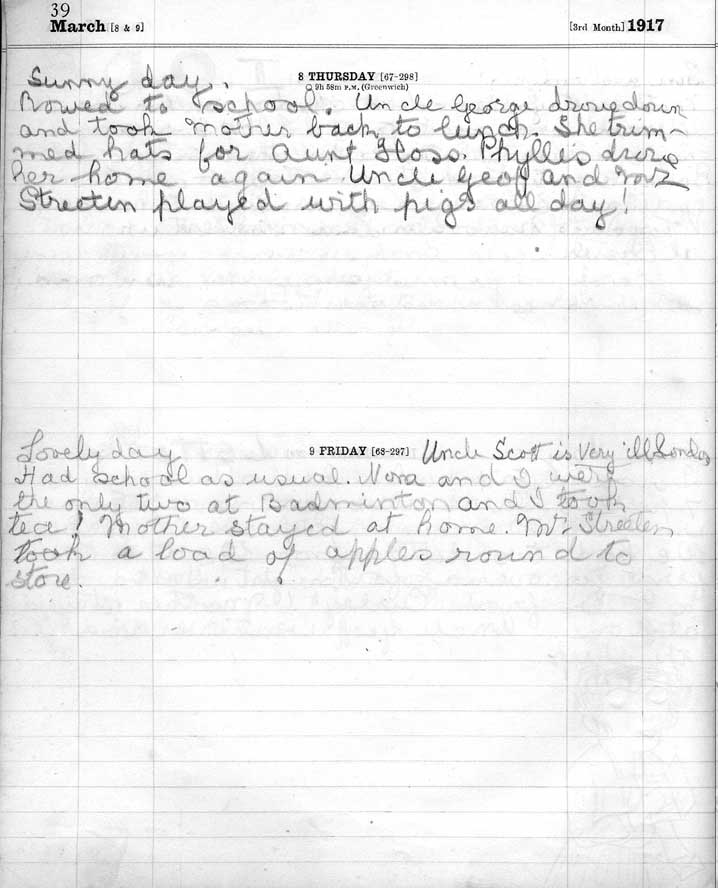 39
March [8 & 9] [3rd Month] 1917
8 THURSDAY [67-298]
9h 58m P.M. (Greenwich)
Sunny day.
Rowed to school. Uncle George drove down
and took Mother back to lunch. She trim-
med hats for Aunt Floss. Phyllis drove
her home again Uncle Geof and Mr
Streeten played with pigs all day!
9 FRIDAY [68-297]
Lovely day Uncle Scott is very ill London
Had school as usual. Nora and I were
the only two at Badminton and I took
tea! Mother stayed at home. Mr. Streeten
took a load of apples round to
store.